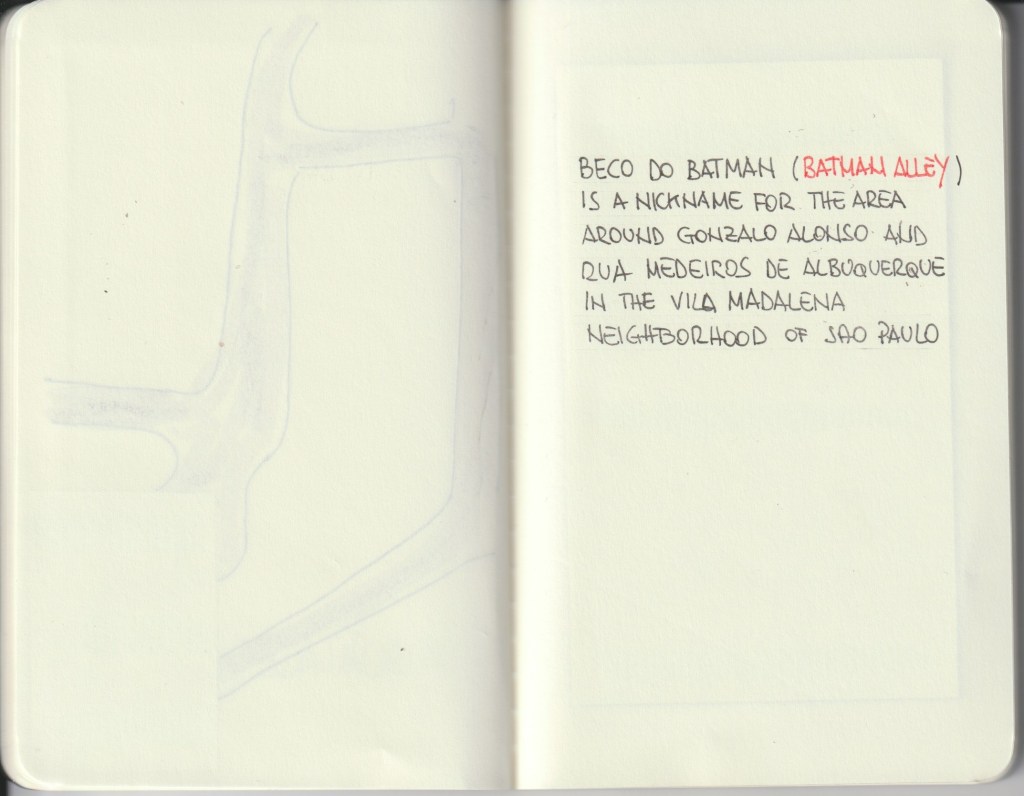 BECO DO BATMAN (BATMAN ALLEY)
IS A NICKNAME FOR THE AREA
AROUND GONZALO ALONSO AND
RUA MEDEIROS DE ALBUQUERQUE
IN THE VILA MADALENA
NEIGHBORHOOD OF SAO PAULO